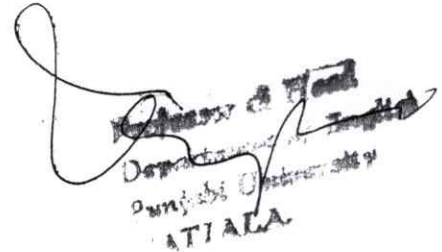 Professor & Head
Department of English
Punjabi University
ATIALA